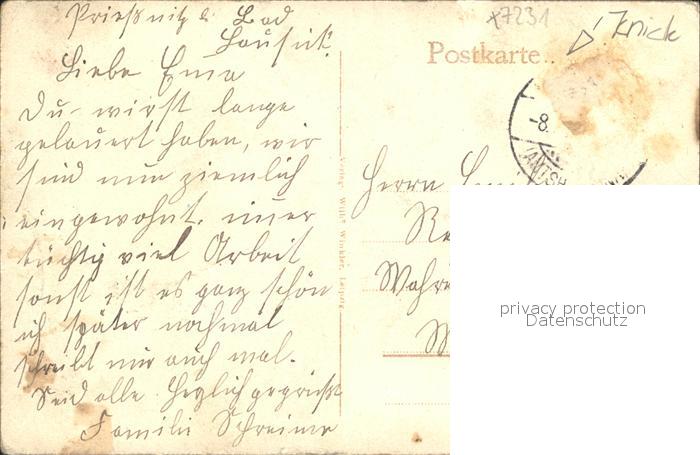 Prießnitz b. Bad
Lausick.
Liebe Erna
Du wirst lange
gelauert haben, wir
sind nun ziemlich
eingewohnt. imer
tüchtig viel Arbeit
sonst ist es ganz schön
ich später nochmal
schreibt mir auch mal.
Seid alle herzlich gegrüßt
Familie Schreiner
x7231
Knick
Postkarte.
-8.
Herrn
Verlag Willy Winkler, Leipzig
privacy protection
Datenschutz